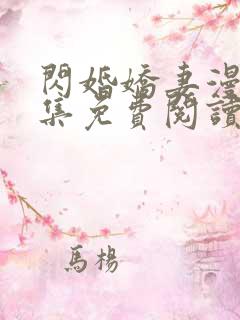 閃婚嬌妻漫
集免費閱讀
馬楊